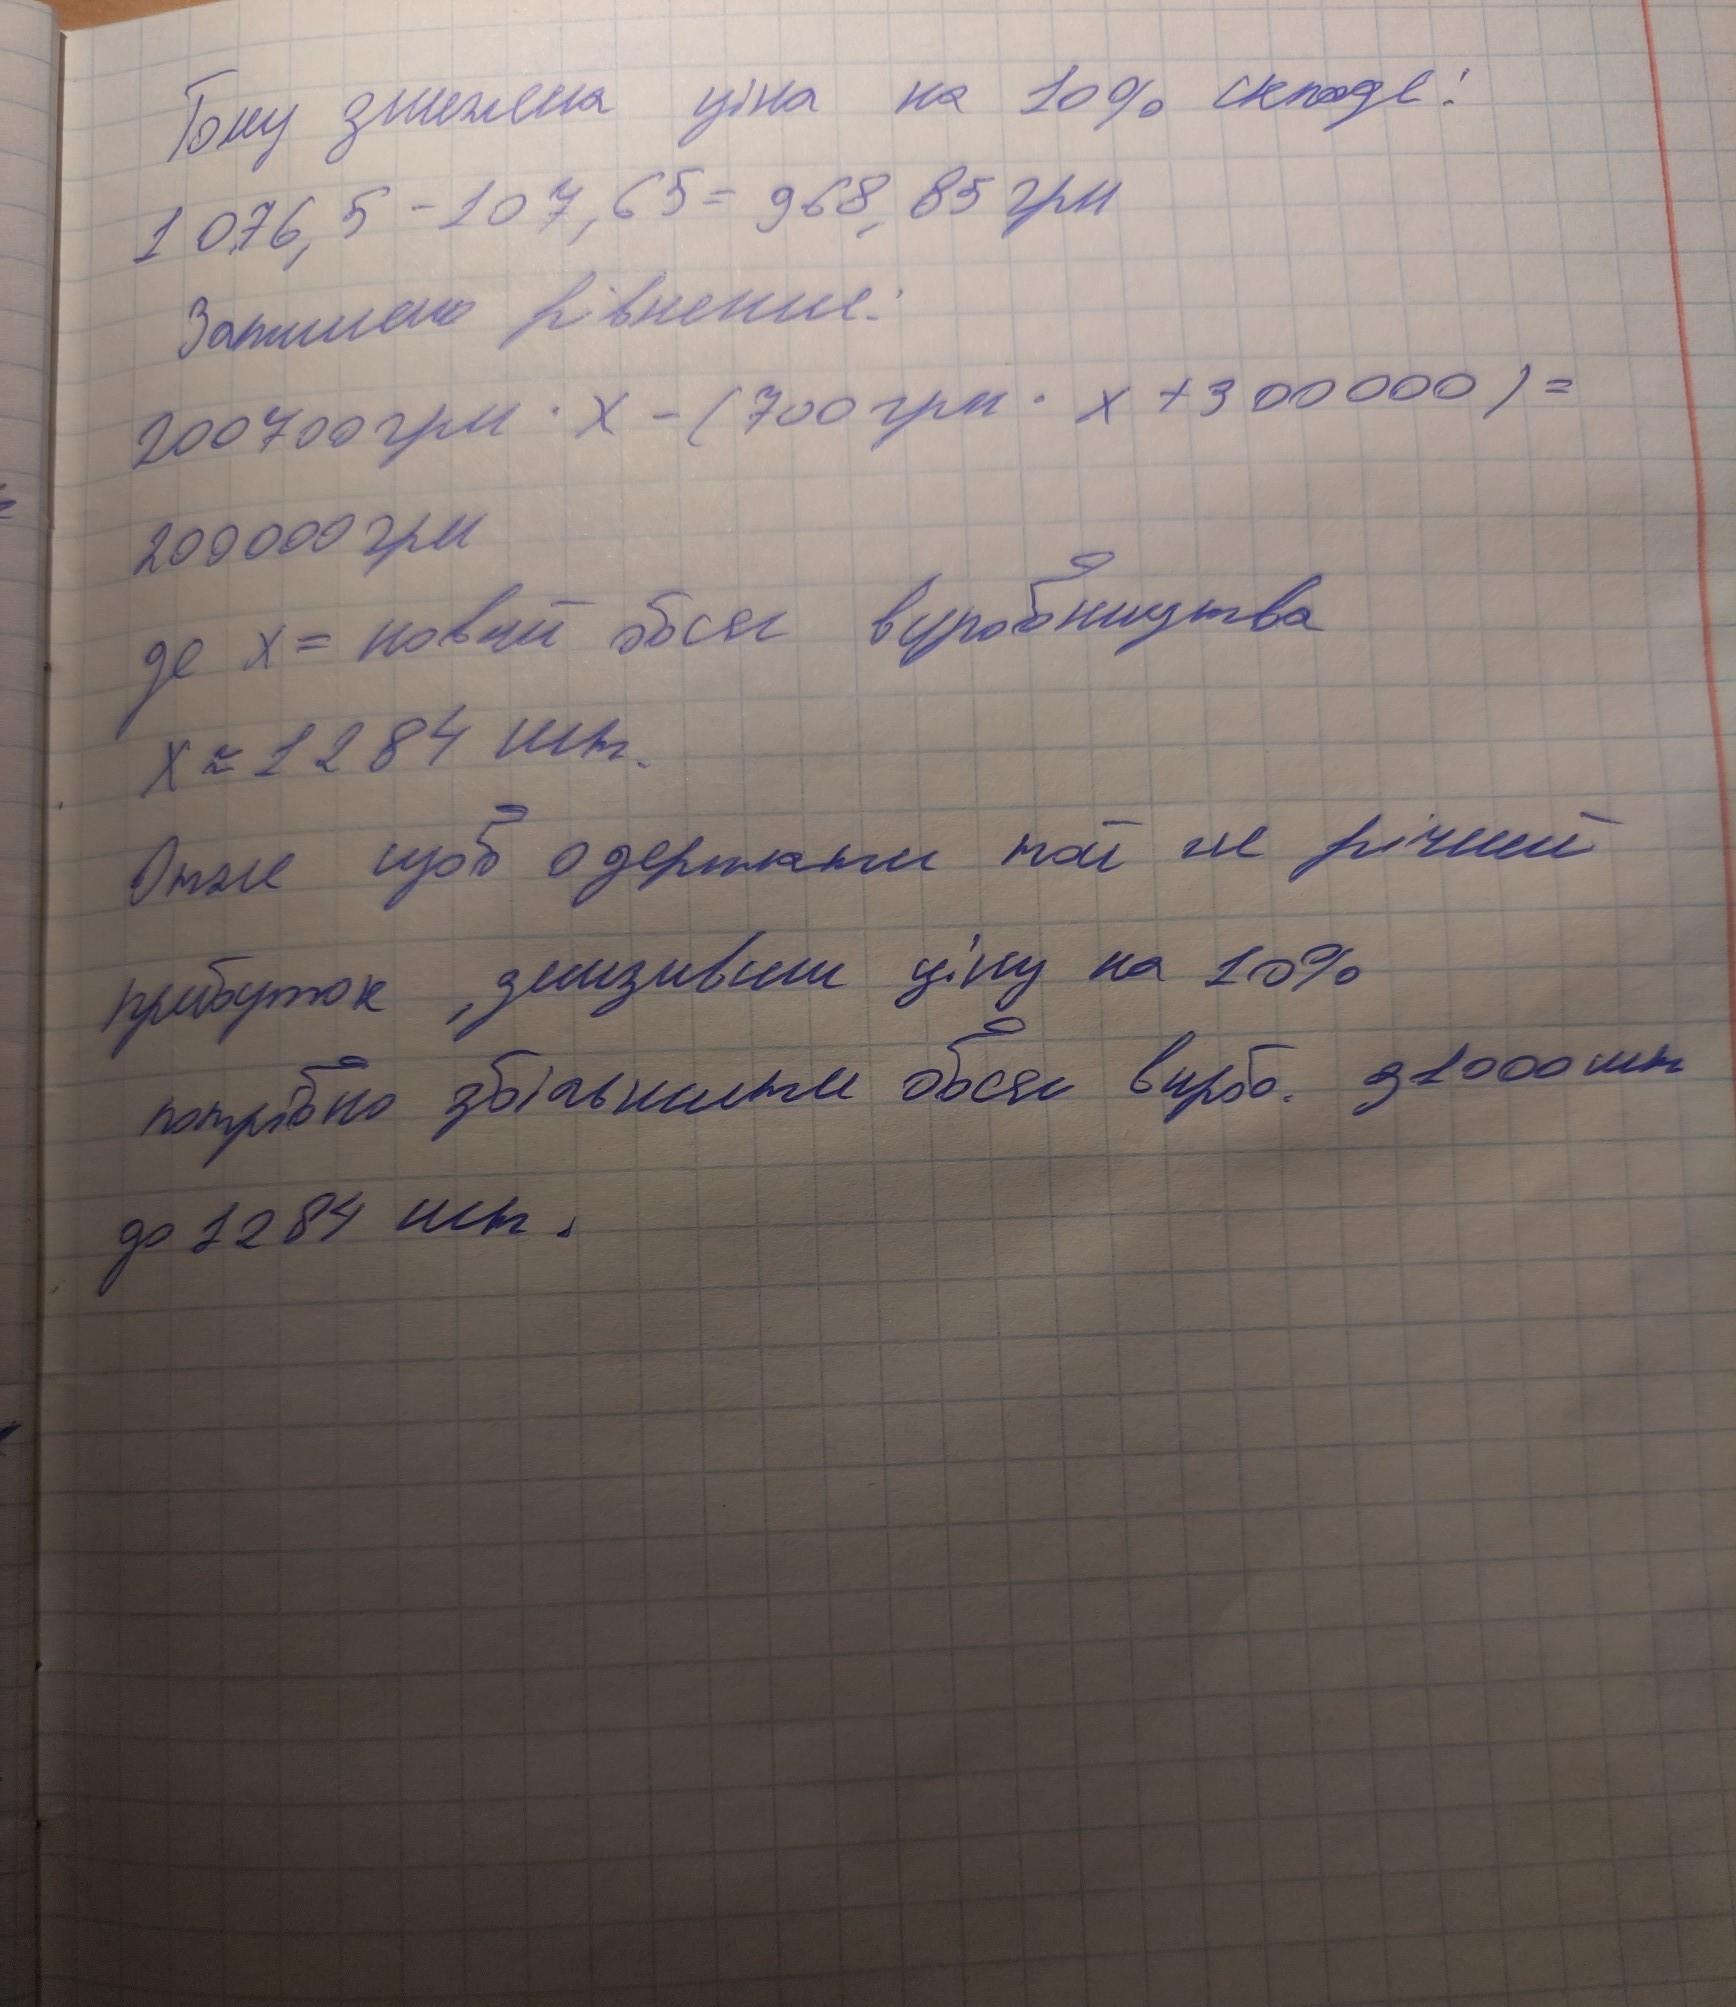 Тому знижена ціна на 10% складе:
1076,5 - 107,65 = 968,85 грн
Запишемо рівнення:
200700 грн · х - (700 грн · х + 300000) =
200000 грн
де х = новий обсяг виробництва
х ≈ 1284 шт.
Отже щоб одержати той же річний
прибуток, знизивши ціну на 10%
потрібно збільшити обсяг вироб. з 1000 шт
до 1284 шт.